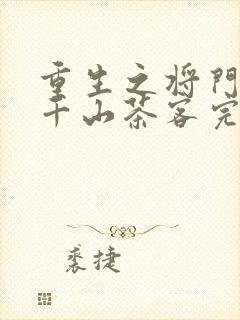 重生之将门
千山茶客完
裘捷